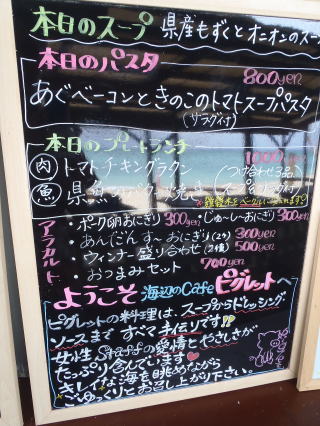 本日のスープ 県産もずくとオニオンのスー
本日のパスタ
800yen
あぐーベーコンときのこのトマトスープパスタ
(サラダ付)
本日のプレートランチ
1000yen
肉 トマトチキングラタン
つけ合わせ3品
魚 県魚 焼き
スープ&サラダ付
アラカルト
・ポーク卵おにぎり 300yen ・じゅーしーおにぎり 300yen
・あんだんすーおにぎり(2ヶ) 300yen
・ウィンナー盛り合わせ(2種) 500yen
・おつまみセット 700yen
ようこそ 海辺のCafe ピグレットへ
ピグレットの料理は、スープからドレッシング
ソースまですべて手作りです!!
女性Staffの愛情とやさしさが
たっぷり含んでいます♥
キレイな海を眺めながら
ごゆっくりとお召し上がり下さい。